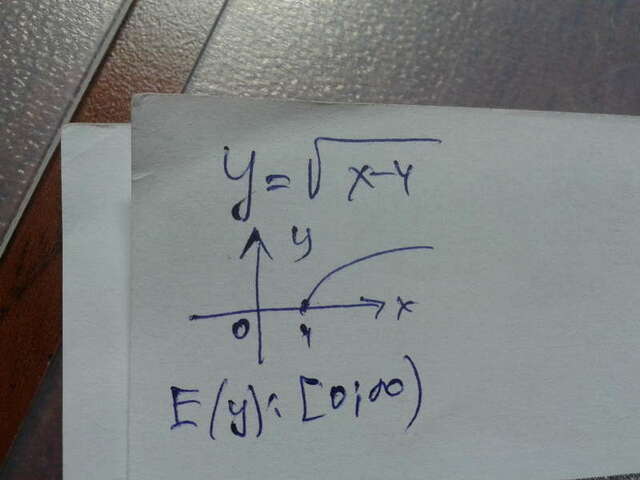 y = √x-4
y
x
0
4
E(y): [0;∞)